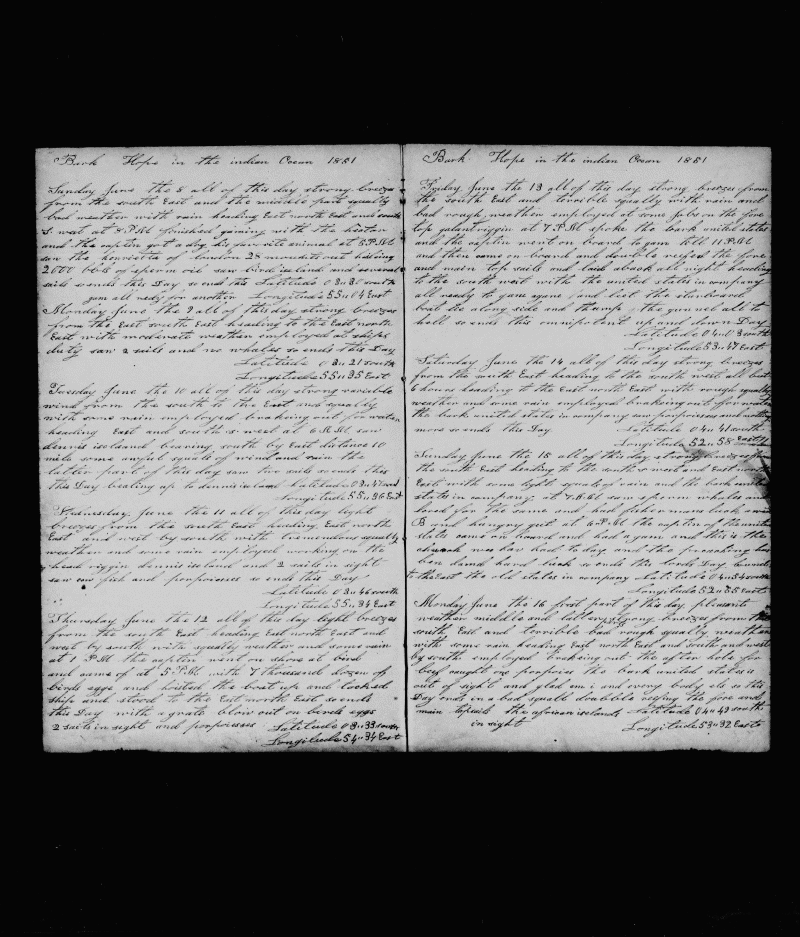 Bark Hope in the indian Ocean 1851
Sunday June the 8 all of this day strong breezes
from the south East and the middle part squally
bad weather with rain heading East north East and south
S. west at 8 P.M finished gaming with the
and the captin got a dog his favorite animal at 5 P.M
saw the of london 28 months out having
2000 bbls of sperm oil saw bird iseland and several
sails so ends this Day so ends this Latitude 03 " 30 south
gam all redy for another Longitude 55 " 04 East
Monday June the 9 all of this day strong breezes
from the East south East heading to the East north
East with moderate weather employed at ships
duty saw 2 sails and no whales so ends this Day
Latitude 03 " 21 south
Longitude 55 " 35 East
Tuesday June the 10 all of this day strong variable
wind from the south to the East and squally
with some rain employed brakeing out for water
heading East and south s. west at 6 A.M. saw
dennis iseland bearing south by East distance 10
mile some awful squals of wind and rain the
latter part of this day saw two sails so ends this
this Day beating up to dennis iseland Latitude 03 " 47 south
Longitude 55 " 36 East
Wednesday June the 11 all of this day light
breezes from the south East heading East north
East and west by south with tremendous squally
weather and some rain employed working on the
head riggin dennis iseland and 2 sails in sight
saw cow fish and porpoieses so ends this Day
Latitude 03 " 46 south
Longitude 55 " 34 East
Thursday June the 12 all of this day light breezes
from the south East heading East north East and
west by south with squally weather and some rain
at 1 P.M the captin went on shore at bird
and came of at 5 P.M with 7 thousand dozen of
birds eggs and hoisted the boat up and tacked
ship and stood to the East north East so ends
this Day with a grate blow out on birds eggs
2 sails in sight and porpoieses Latitude 03 " 33 south
Longitude 54 " 34 East
Bark Hope in the indian Ocean 1851
Friday June the 13 all of this day strong breezes from
the south East and terrible squally with rain and
bad rough weather employed at some jobs on the fore
top galant riggin at 7 P.M spoke the bark united states
and the captin went on board to gam till 11 P.M
and then came on board and double reefed the fore
and main top sails and laid aback all night heading
to the south west with the united states in company
all ready to gam agane and let the starboard
boat lie along side and thump the gunnel all to
hell so ends this omnipotent up and down Day
Latitude 04 " 03 south
Longitude 53 " 47 East
Saturday June the 14 all of this day strong breezes
from the south East heading to the south west all but
6 hours heading to the East north East with rough squally
weather and some rain employed brakeing out for water
the bark united states in company saw porpoieses and nothing
more so ends this Day Latitude 04 " 41 south
Longitude 52 " 58 East
Sunday June the 15 all of this day strong breezes from
the south East heading to the south west and East north
East with some light squals of rain and the bark united
states in company at 7 A.M saw sperm whales and
lowed for the same and had fishermans luck a wet
B and hungry gut at 4 P.M the captin of the united
states came on board and had a gam and this is the
church we hav had to day and the preaching has
ben damd hard luck so ends this lords Day
to the East the old states in company Latitude 04 " 54 south
Longitude 52 " 55 East
Monday June the 16 first part of this day pleasant
weather middle and latter strong breezes from the
south East and terrible bad rough squally weather
with some rain heading East north East and south and west
by south employed brakeing out the after hole for
beef caught one porpoise the bark united states is
out of sight and glad am i and every body els so this
Day ends in a bad squall double reefing the fore and
main topsails the african iselands Latitude 04 " 43 south
in sight Longitude 53 " 32 East